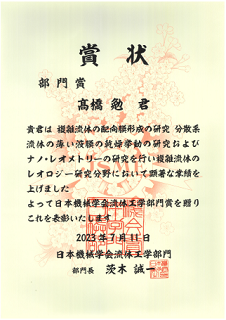 賞状
部門賞
髙橋 勉 君
貴君は 複雑流体の配向膜形成の研究 分散系
流体の薄い液膜の乾燥挙動の研究および
ナノ・レオメトリーの研究を行い複雑流体の
レオロジー研究分野において顕著な業績を
上げました
よって日本機械学会流体工学部門賞を贈り
これを表彰いたします
2023年7月11日
日本機械学会流体工学部門
部門長 茨木 誠一
JSME